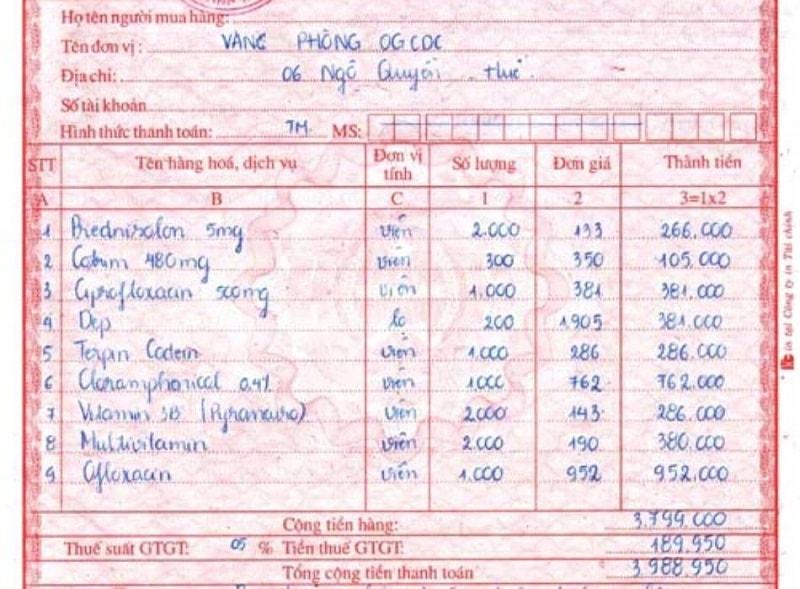 Họ tên người mua hàng:
Tên đơn vị: VĂNG PHÒNG OGCDC
Địa chỉ: 06 Ngô Quyền Huế.
Số tài khoản
Hình thức thanh toán: TM. MS:
STT Tên hàng hoá, dịch vụ Đơn vị tính Số lượng Đơn giá Thành tiền
A B C 1 2 3=1x2
1 Prednisolon 5mg viên 2.000 133 266.000
2 480mg viên 300 350 105.000
3 Ciprofloxacin 500mg viên 1.000 381 381.000
4 Dep lọ 200 1.905 381.000
5 Terpin Codein viên 1.000 286 286.000
6 0.4% viên 1000 762 762.000
7 Vitamin 3B viên 2000 143 286.000
8 Multivitamin viên 2.000 190 380.000
9 Ofloxacin viên 1.000 952 952.000
Cộng tiền hàng: 3.799.000
Thuế suất GTGT: 05 % Tiền thuế GTGT: 189.950
Tổng cộng tiền thanh toán 3.988.950
in tại Công ty in Tài chính